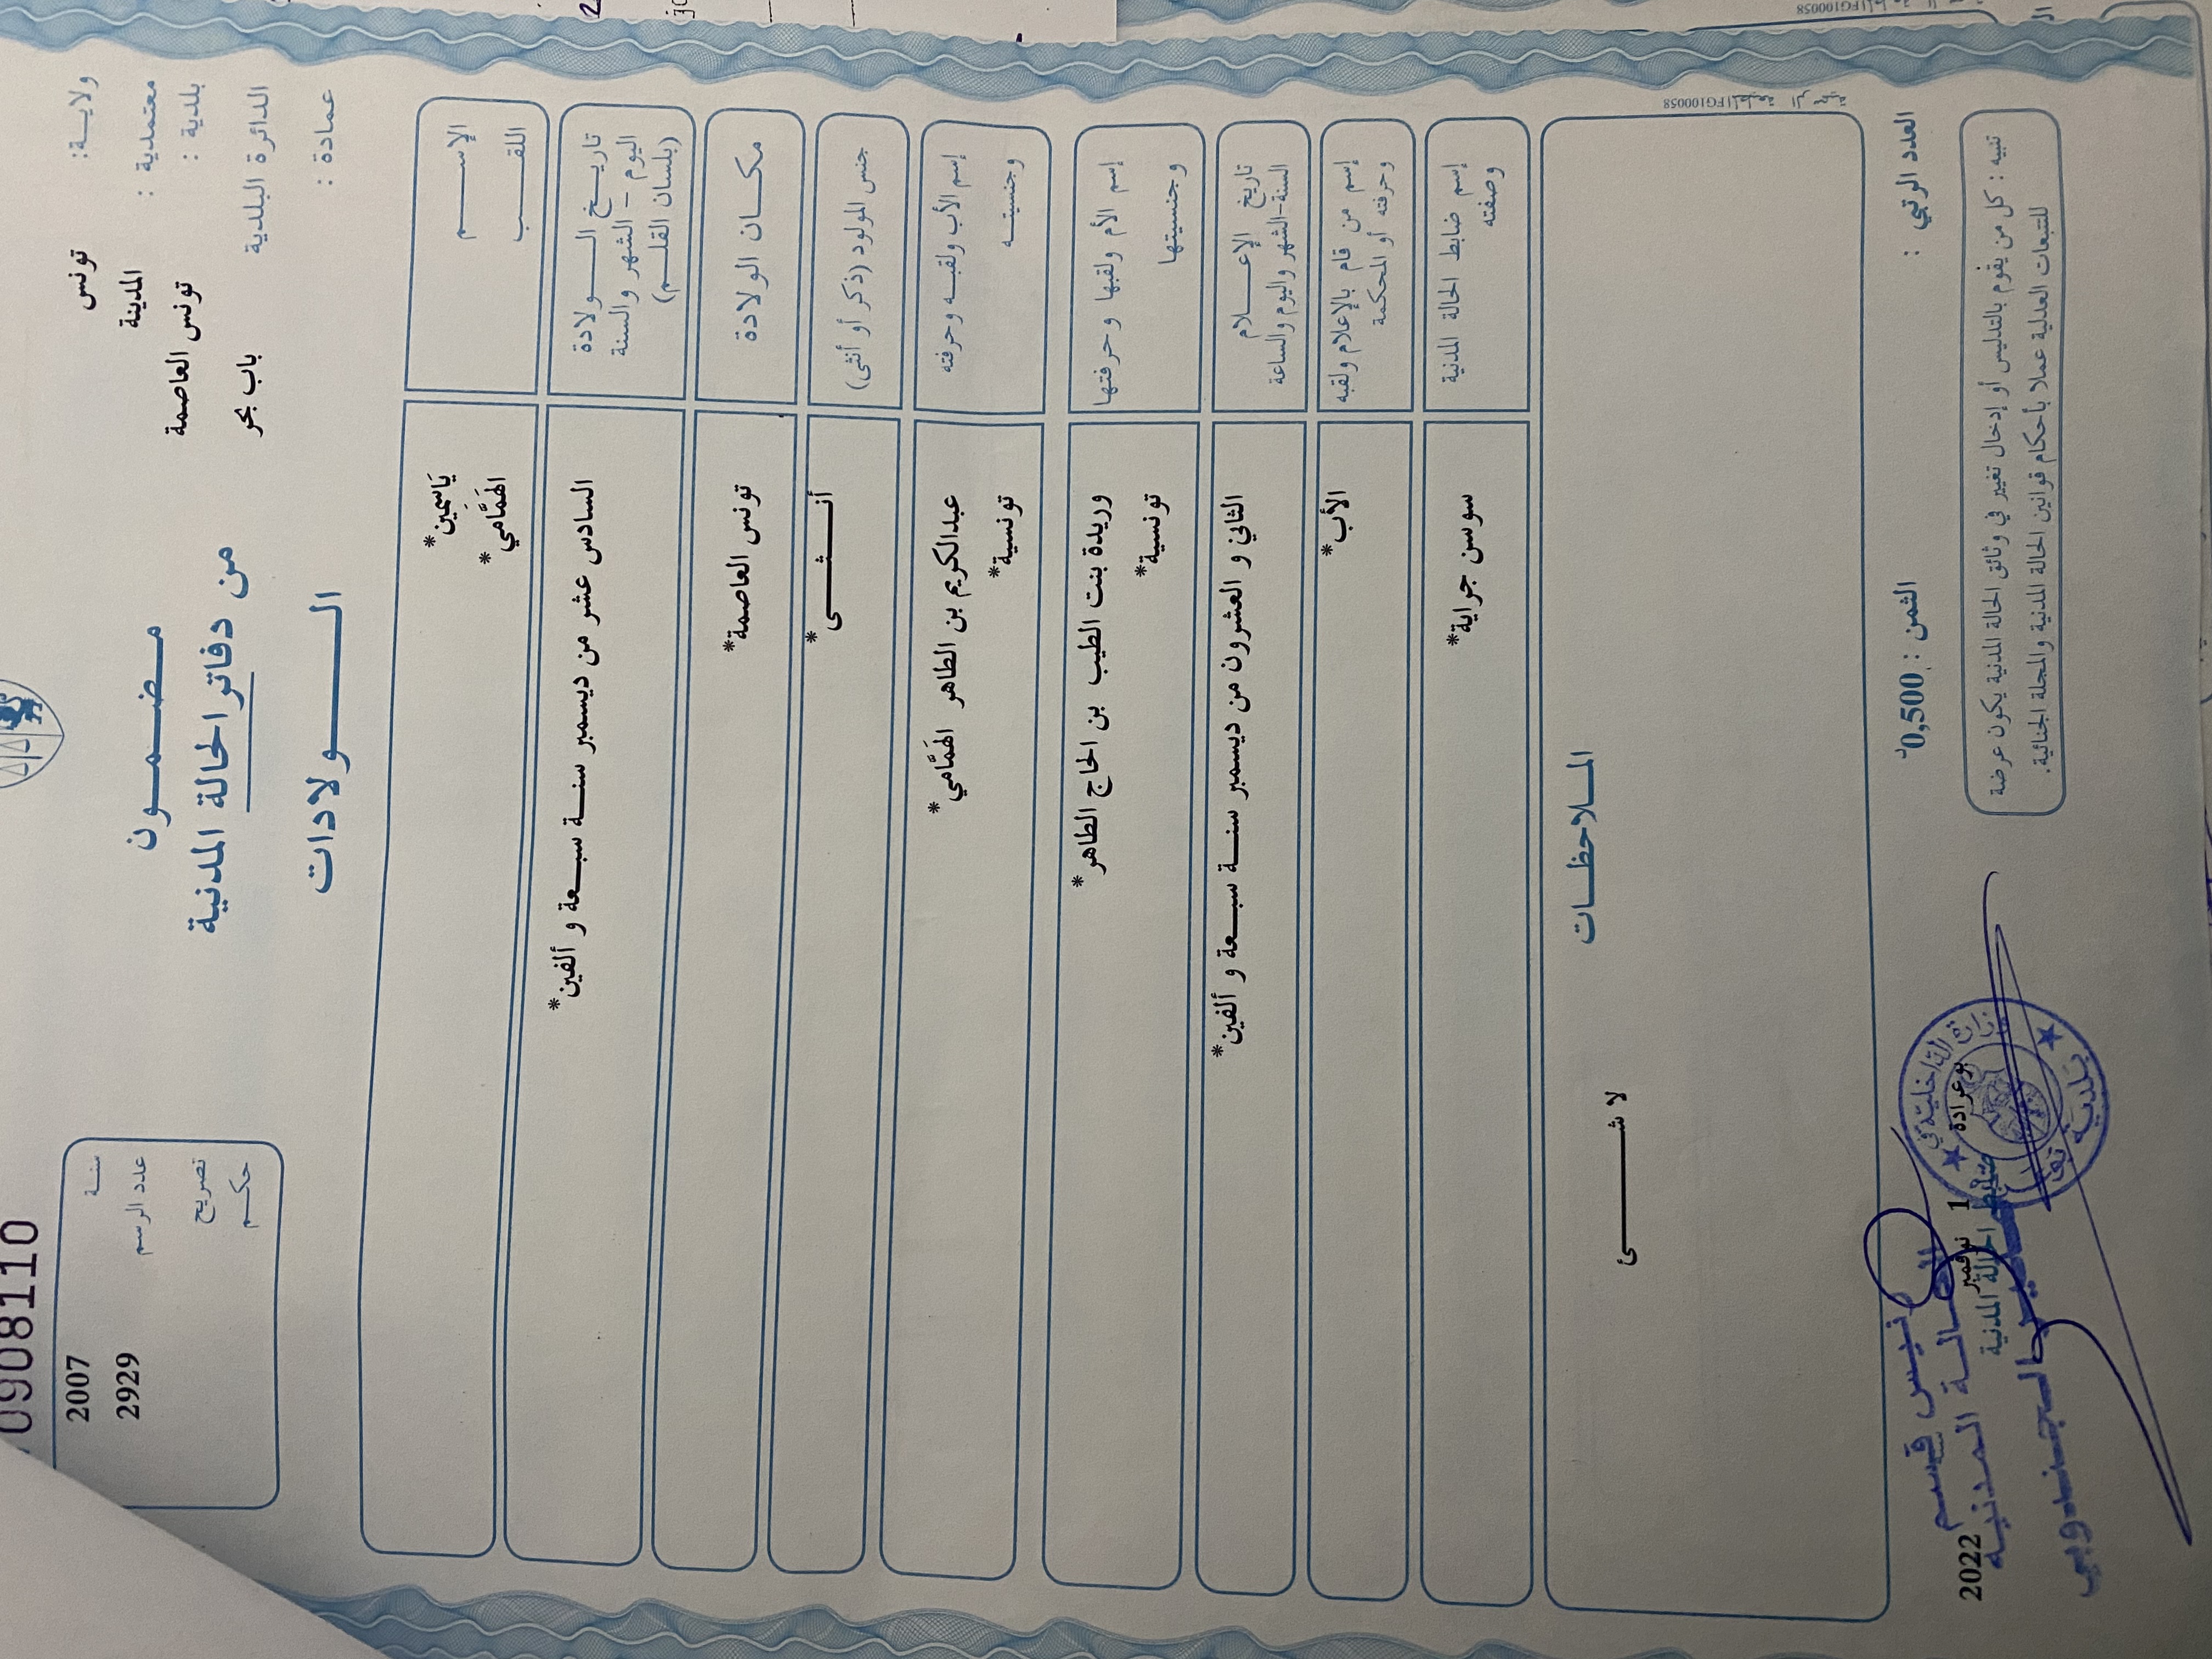 0908110
ولايــة: تونس
معتمدية : المدينة
بلدية : تونس العاصمة
الدائرة البلدية باب بحر
عمادة :
مـضـمـــون
من دفاتر الحالة المدنية
الــــــولادات
سنــة 2007
عدد الرسم 2929
تصريح
حكـــم
الإســـــم
اللقـــــب
يَاسِمِين*
الهَمَّامِي*
تاريــــخ الــــــولادة
اليوم – الشهر والسنة
(بلسان القلـــم)
السادس عشر من ديسمبر سنــة سبــعة و ألفين*
مكــــان الولادة
تونس العاصمة*
جنس المولود (ذكر أو أنثى)
أنــــثــــى*
إسم الأب ولقبــه وحرفته
وجنسيتـــه
عبدالكريم بن الطاهر الهَمَّامِي*
تونسية*
إسم الأم ولقبها وحرفتها
وجنسيتها
وريدة بنت الطيب بن الحاج الطاهر*
تونسية*
تاريخ الإعـــــلام
السنة-الشهر واليوم والساعة
الثاني و العشرون من ديسمبر سنــة سبــعة و ألفين*
إسم من قام بالإعلام ولقبه
وحرفته أو المحكمة
الأب*
إسم ضابط الحالة المدنية
وصفته
سوسن جراية*
FG100058
المــلاحظــات
لا شـــــــئ
العدد الرتبي :
الثمن : 0,500د
تنبيه : كل من يقوم بالتدليس أو إدخال تغيير في وثائق الحالة المدنية يكون عرضة
للتتبعات العدلية عملا بأحكام قوانين الحالة المدنية والمجلة الجنائية.
بوعرادة 1 نوفمبر 2022
ضابط الحالة المدنية
رئيس قسم
الحالـة المـدنيـة
بلدية
FG100058